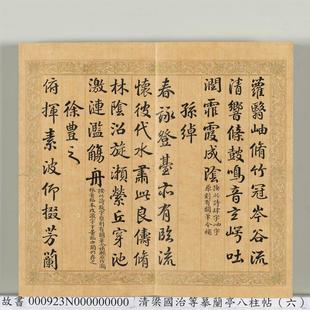 蘿翳岫脩竹冠岑谷流
清響條鼓鳴音玄崿吐
潤霏霞成陰
孫綽
春詠登臺亦有臨流
懷彼伐木肅此良儔脩
林陰沼旋瀨縈丘穿池
激漣濫觴舟
徐豐之
俯揮素波仰掇芳蘭
故書 000923N000000000 清梁國治等摹蘭亭八柱帖（六）